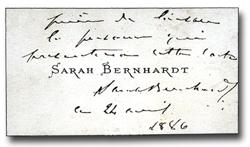 prière de laisser
la personne qui
présentera cette carte
SARAH BERNHARDT
Sarah Bernhardt
ce 24 avril
1886